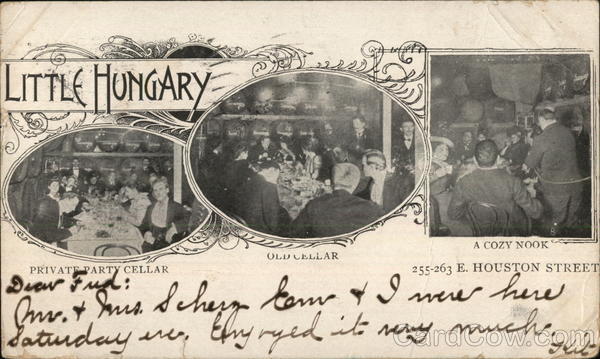 LITTLE HUNGARY
PRIVATE PARTY CELLAR
OLD CELLAR
A COZY NOOK
255-263 E. HOUSTON STREET
Dear Fred:
Mr. & Mrs. Scherz & I were here
Saturday eve. Enjoyed it very much.
CardCow.com